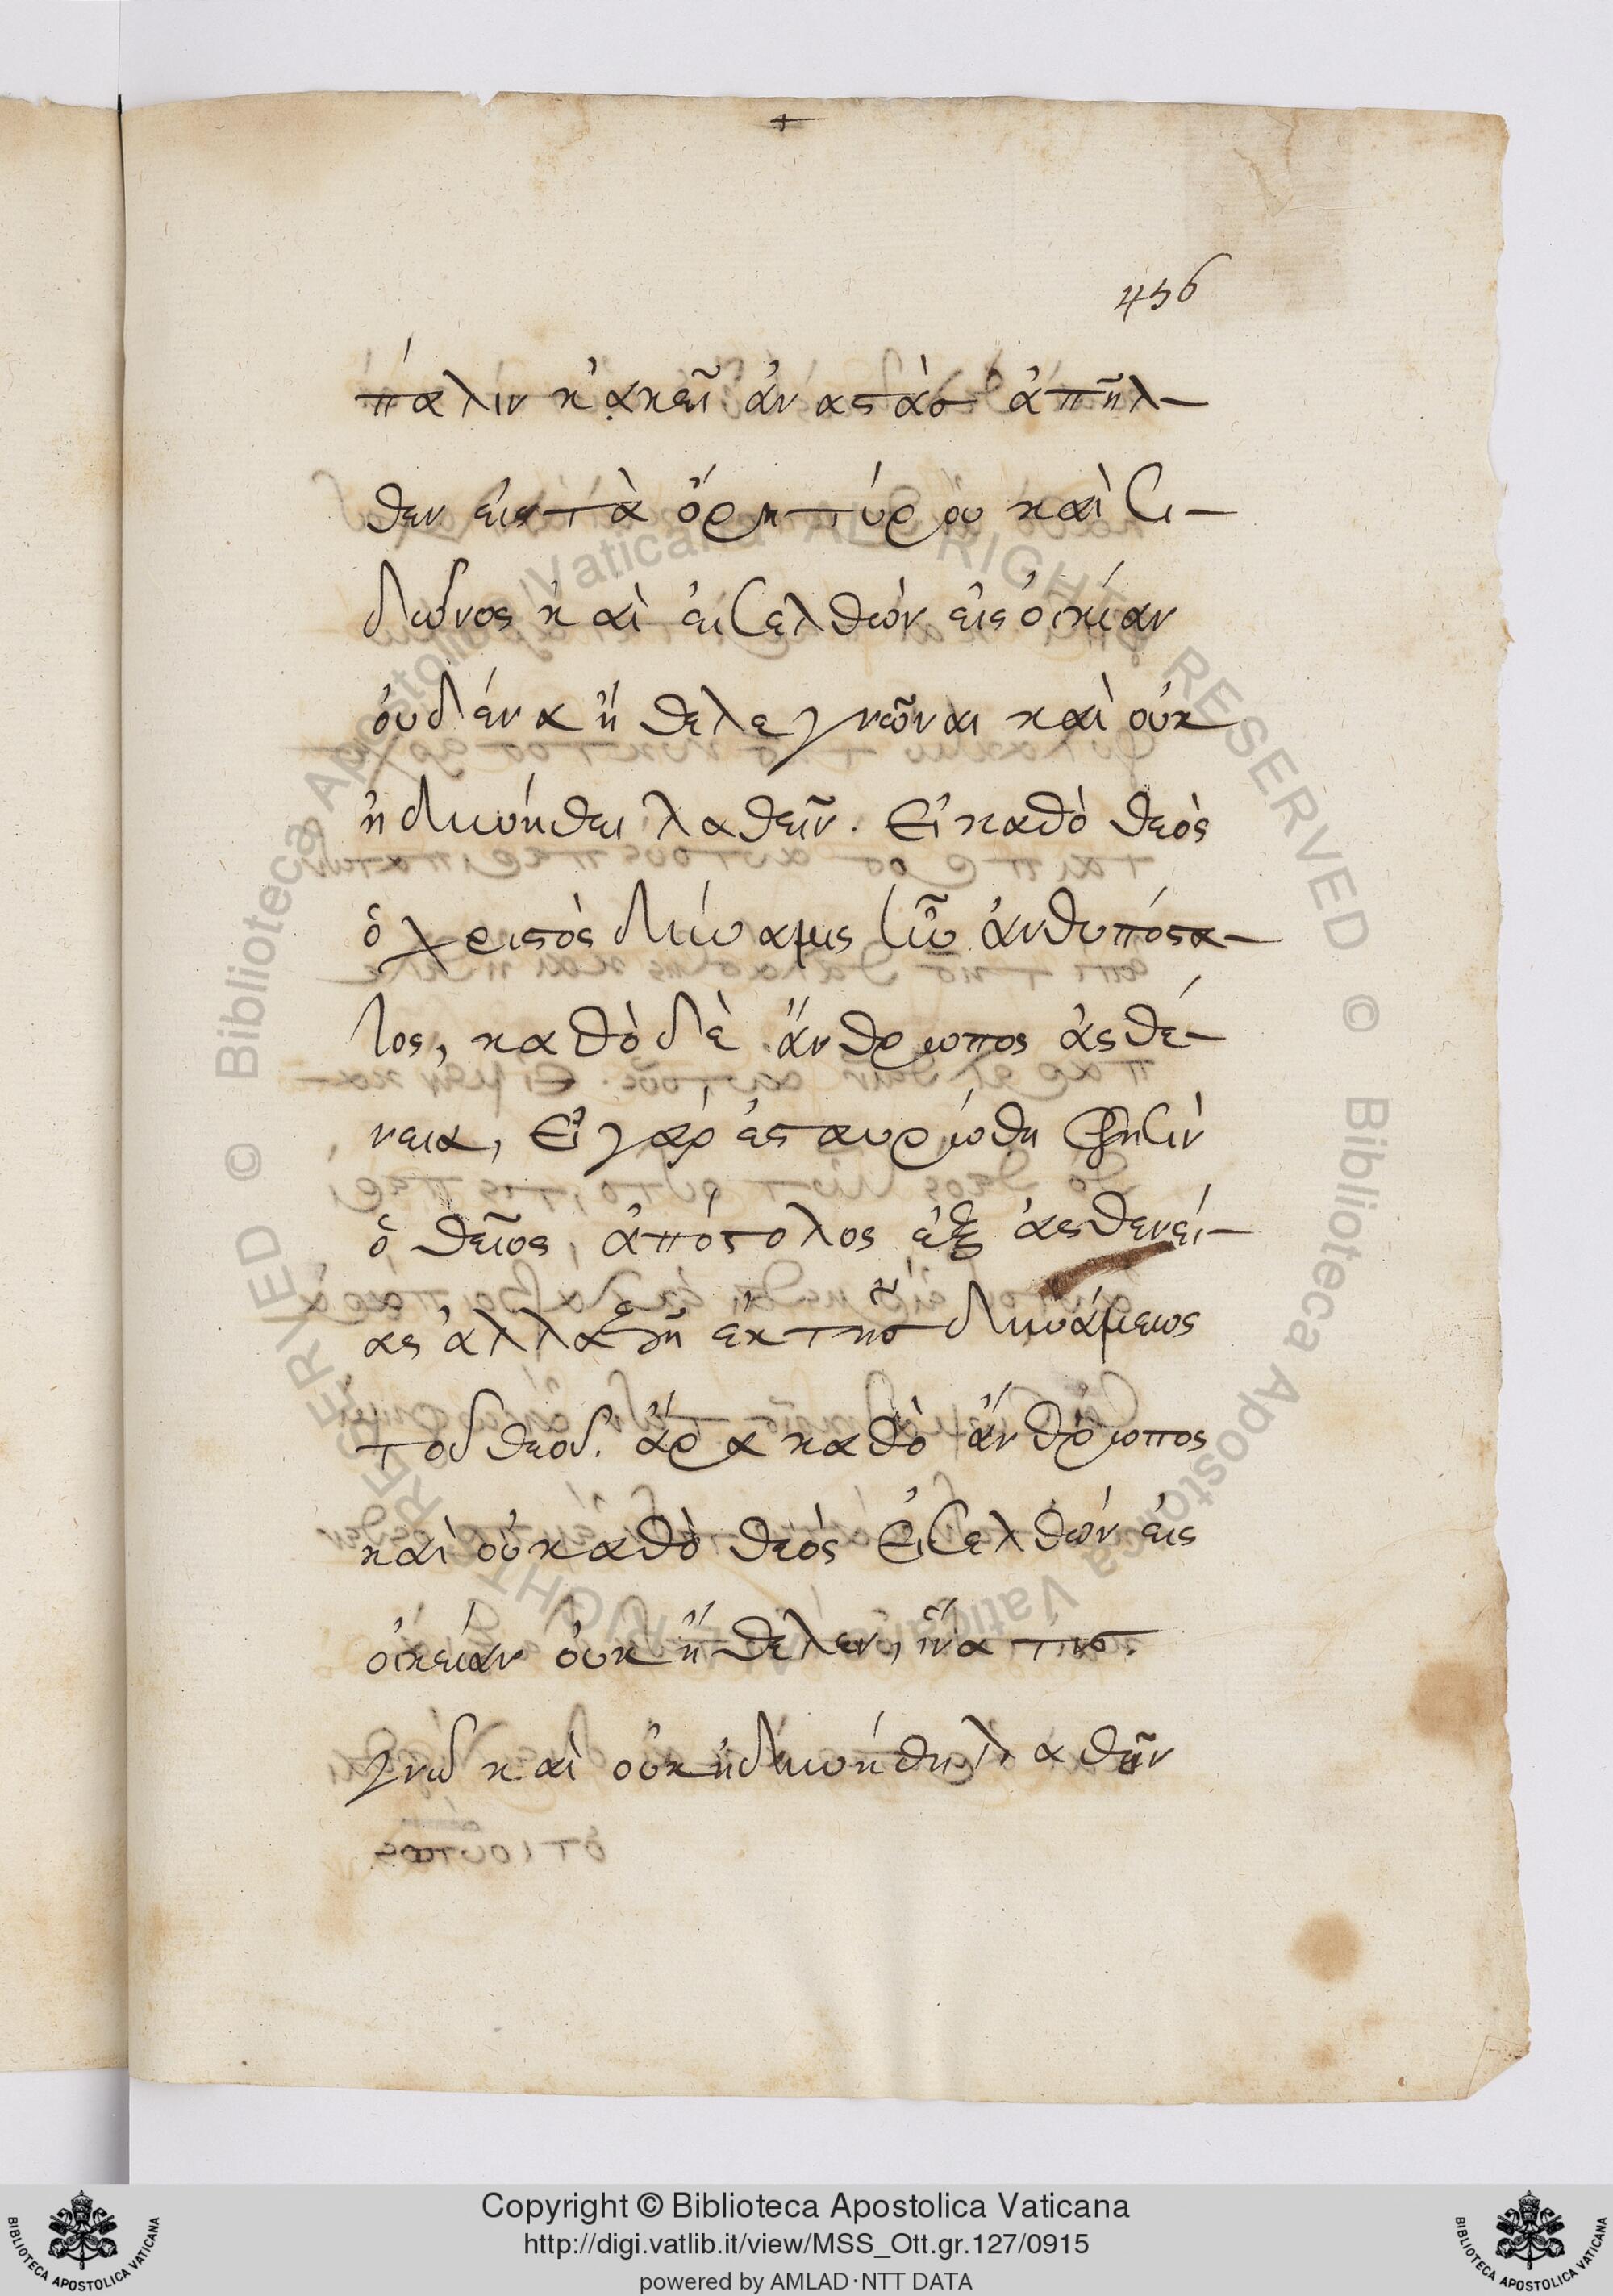 456
πάλιν κἀκεῖ ἀναστὰσ ἀπῆλ-
θεν εἰς τὰ ὅρη τύρου καὶ σι-
δῶνος καὶ εἰσελθὼν εἰς οἰκίαν
οὐδένα ἤθελε γνῶναι καὶ οὐκ
ἠδυνήθει λαθεῖν. Εἰ καθὸ θεὸς
ὁ χριστὸς δύναμις ἦν ἀνθυπόστα-
τος, καθὸ δὲ ἄνθρωπος ἀσθέ-
νεια, Εἰ γάρ ἐσταυρώθη φησὶν
ὁ θεῖος, ἀπόστολος ἐξ ἀσθενεί-
ας ἀλλὰ ζῆ ἐκ τῆσ δυνάμεως
τοῦ θεοῦ. ἄρα καθὸ ἄνθρωπος
καὶ οὐ καθὸ θεός εἰσελθών εἰς
οἰκείαν οὐκ ἤθελεν, ἵνα τισ
γνῶ καὶ οὐκ ἠδυνήθη λαθῆν
Copyright © Biblioteca Apostolica Vaticana
http://digi.vatlib.it/view/MSS_Ott.gr.127/0915
powered by AMLAD·NTT DATA
BIBLIOTECA APOSTOLICA VATICANA
BIBLIOTECA APOSTOLICA VATICANA
© Biblioteca Apostolica Vaticana ALL RIGHTS RESERVED
© Biblioteca Apostolica Vaticana ALL RIGHTS RESERVED